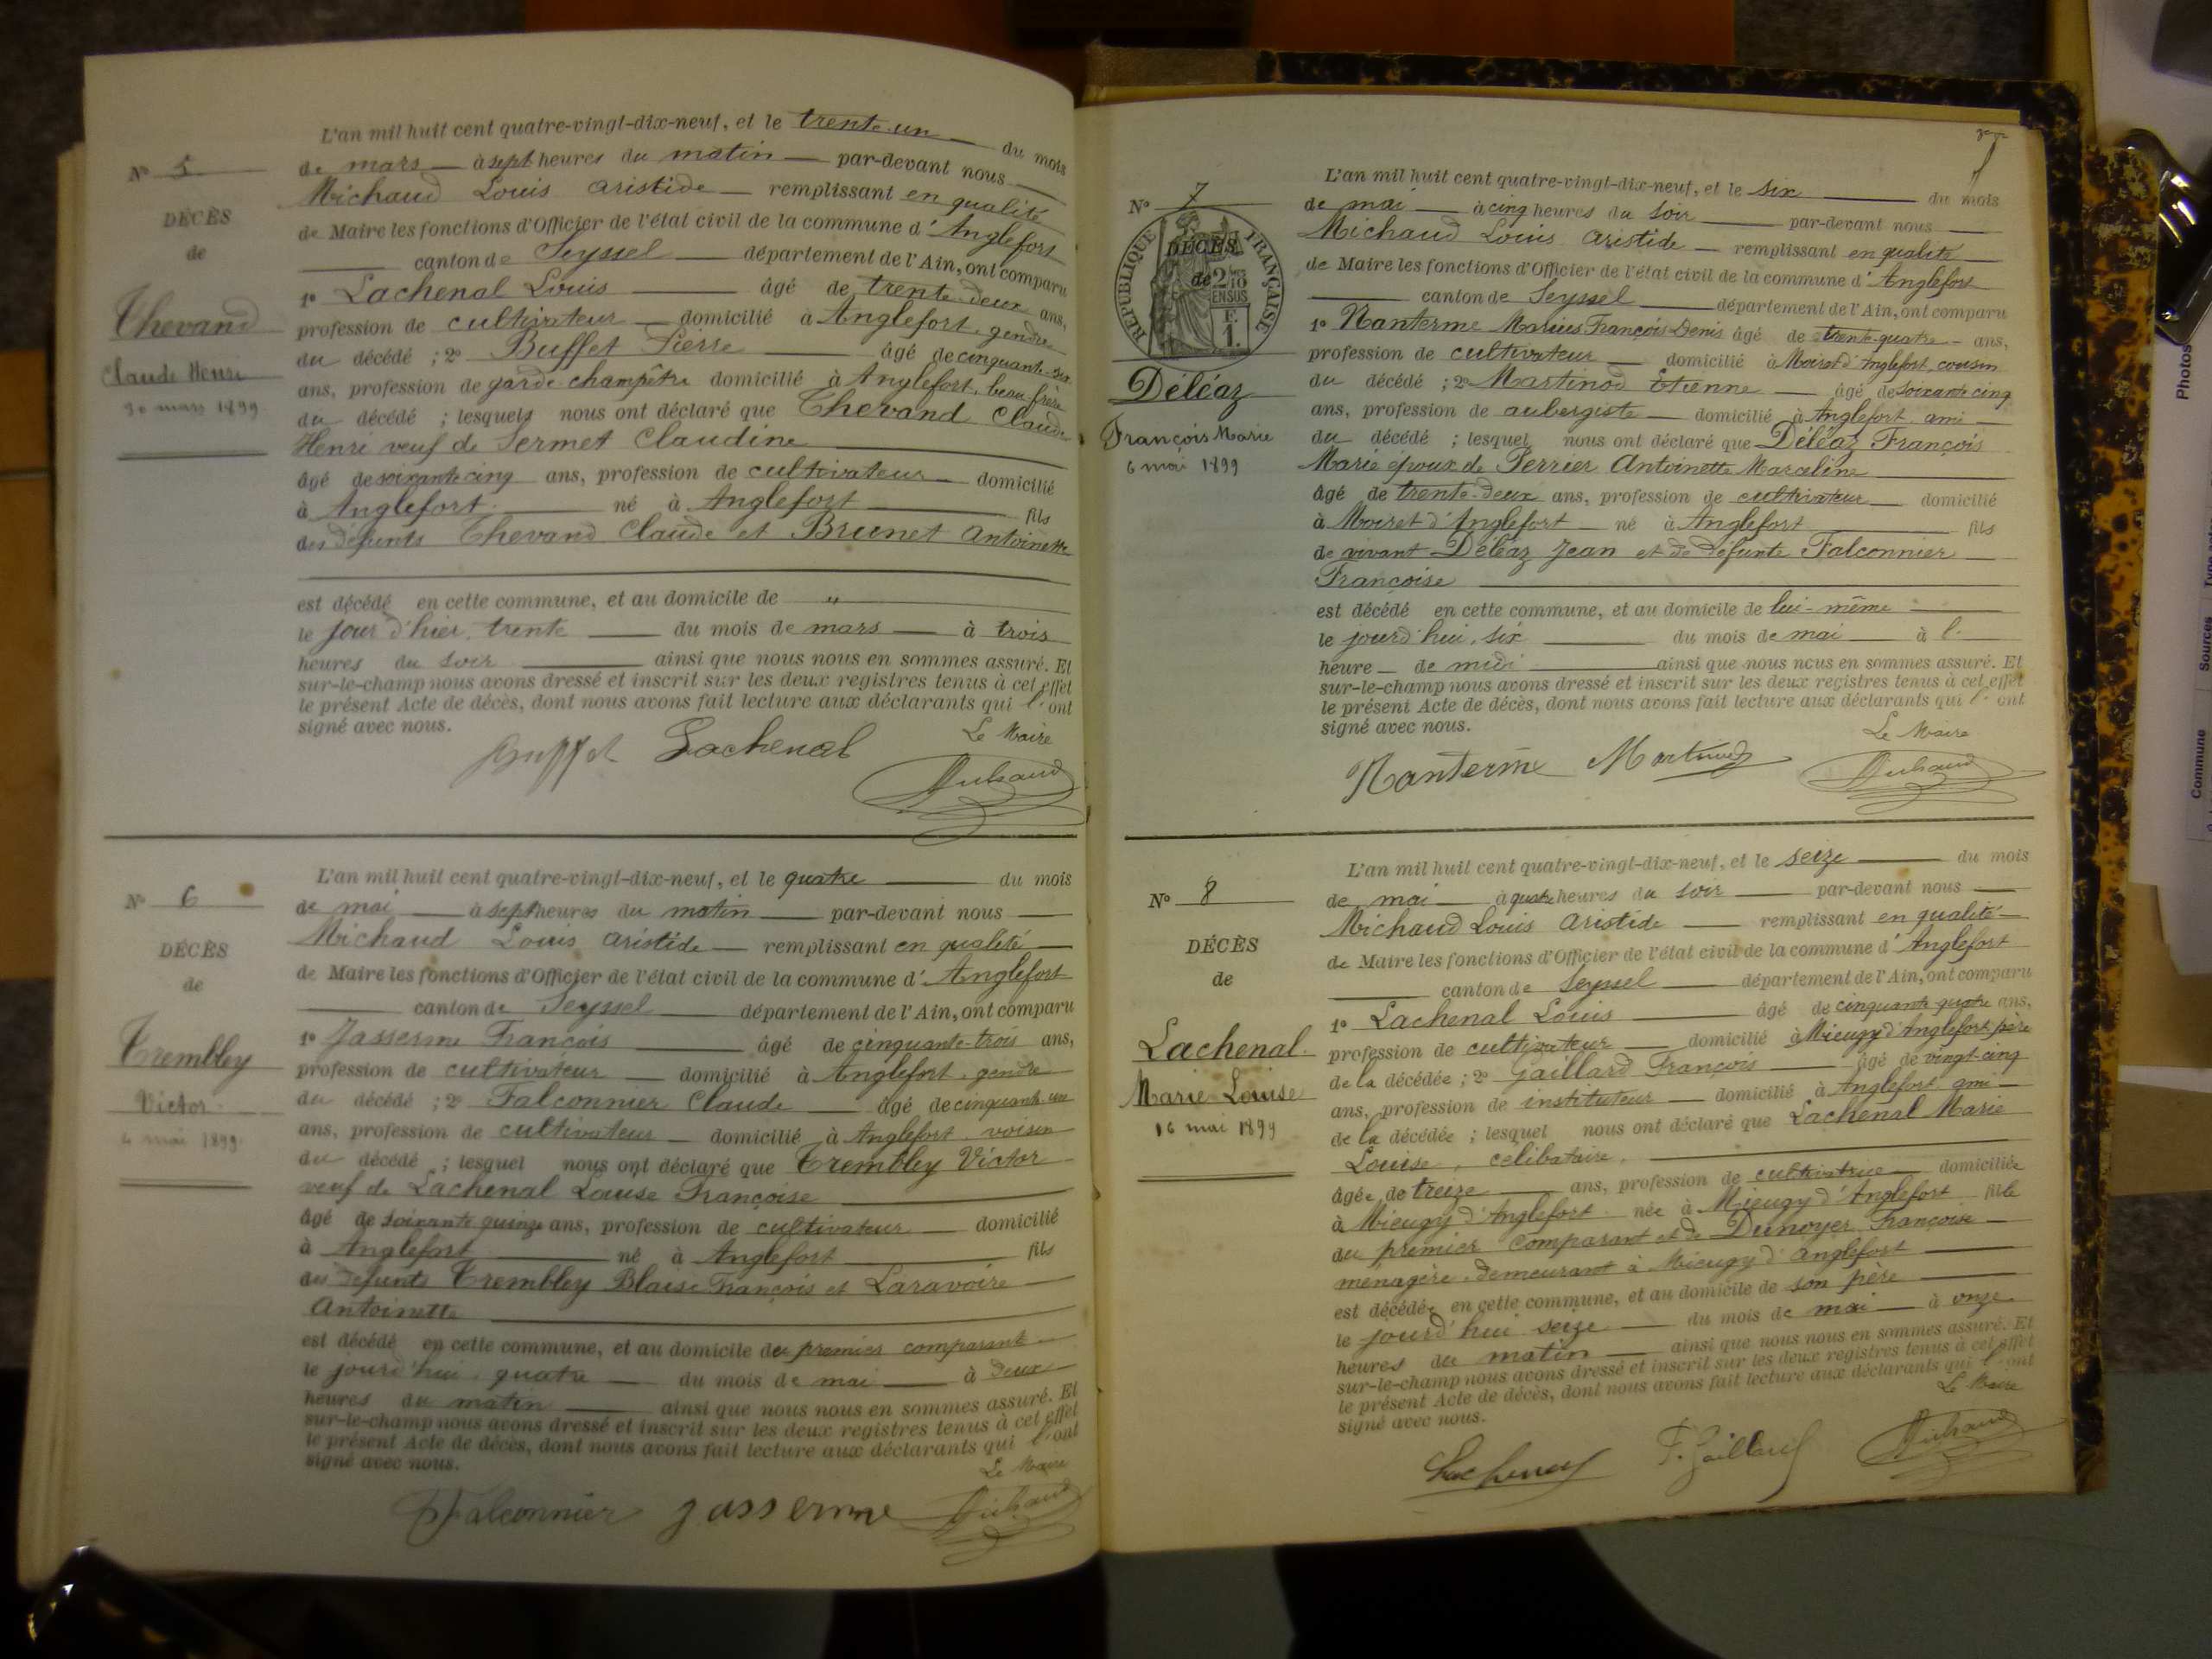 N° 5
DÉCÈS
de
Thevand
Claude Henri
30 mars 1899
L'an mil huit cent quatre-vingt-dix-neuf, et le trente-un du mois
de mars à sept heures du matin par-devant nous
Michaud Louis Aristide remplissant en qualité
de Maire les fonctions d'Officier de l'état civil de la commune d'Anglefort
canton de Seyssel département de l'Ain, ont comparu
1° Lachenal Louis âgé de trente-deux ans,
profession de cultivateur domicilié à Anglefort, gendre
du décédé ; 2° Buffet Pierre âgé de cinquante-six
ans, profession de garde champêtre domicilié à Anglefort, beau-frère
du décédé ; lesquels nous ont déclaré que Thevand Claude
Henri veuf de Sermet Claudine
âgé de soixante cinq ans, profession de cultivateur domicilié
à Anglefort né à Anglefort fils
des défunts Thevand Claude et Brunet Antoinette
est décédé en cette commune, et au domicile de "
le jour d'hier, trente du mois de mars à trois
heures du soir ainsi que nous nous en sommes assuré. Et
sur-le-champ nous avons dressé et inscrit sur les deux registres tenus à cet effet
le présent Acte de décès, dont nous avons fait lecture aux déclarants qui l'ont
signé avec nous.
Le Maire
Buffet Lachenal Michaud
N° 6
DÉCÈS
de
Trembley
Victor
4 mai 1899
L'an mil huit cent quatre-vingt-dix-neuf, et le quatre du mois
de mai à sept heures du matin par-devant nous
Michaud Louis Aristide remplissant en qualité
de Maire les fonctions d'Officier de l'état civil de la commune d'Anglefort
canton de Seyssel département de l'Ain, ont comparu
1° Jasserme François âgé de cinquante-trois ans,
profession de cultivateur domicilié à Anglefort, gendre
du décédé ; 2° Falconnier Claude âgé de cinquante-un
ans, profession de cultivateur domicilié à Anglefort, voisin
du décédé ; lesquel nous ont déclaré que Trembley Victor
veuf de Lachenal Louise Françoise
âgé de soixante quinze ans, profession de cultivateur domicilié
à Anglefort né à Anglefort fils
des défunts Trembley Blaise François et Laravoire
Antoinette
est décédé en cette commune, et au domicile du premier comparant
le jourd'hui, quatre du mois de mai à deux
heures du matin ainsi que nous nous en sommes assuré. Et
sur-le-champ nous avons dressé et inscrit sur les deux registres tenus à cet effet
le présent Acte de décès, dont nous avons fait lecture aux déclarants qui l'ont
signé avec nous.
Le Maire
Falconnier Jasserme Michaud
N° 7
RÉPUBLIQUE FRANÇAISE
DÉCÈS
de
2/10 EN SUS
F. 1.
Déléaz
François Marie
6 mai 1899
L'an mil huit cent quatre-vingt-dix-neuf, et le six du mois
de mai à cinq heures du soir par-devant nous
Michaud Louis Aristide remplissant en qualité
de Maire les fonctions d'Officier de l'état civil de la commune d'Anglefort
canton de Seyssel département de l'Ain, ont comparu
1° Nanterme Marius François Denis âgé de trente-quatre ans,
profession de cultivateur domicilié à Moiret d'Anglefort, cousin
du décédé ; 2° Martinod Etienne âgé de soixante cinq
ans, profession de aubergiste domicilié à Anglefort ami
du décédé ; lesquel nous ont déclaré que Déléaz François
Marie époux de Perrier Antoinette Marceline
âgé de trente-deux ans, profession de cultivateur domicilié
à Moiret d'Anglefort né à Anglefort fils
de vivant Déléaz Jean et de défunte Falconnier
Françoise
est décédé en cette commune, et au domicile de lui-même
le jourd'hui, six du mois de mai à l'
heure de midi ainsi que nous nous en sommes assuré. Et
sur-le-champ nous avons dressé et inscrit sur les deux registres tenus à cet effet
le présent Acte de décès, dont nous avons fait lecture aux déclarants qui l'ont
signé avec nous.
Le Maire
Nanterme Martinod Michaud
N° 8
DÉCÈS
de
Lachenal
Marie Louise
16 mai 1899
L'an mil huit cent quatre-vingt-dix-neuf, et le seize du mois
de mai à quatre heures du soir par-devant nous
Michaud Louis Aristide remplissant en qualité
de Maire les fonctions d'Officier de l'état civil de la commune d'Anglefort
canton de Seyssel département de l'Ain, ont comparu
1° Lachenal Louis âgé de cinquante quatre ans,
profession de cultivateur domicilié à Mieugy d'Anglefort père
de la décédée ; 2° Gaillard François âgé de vingt-cinq
ans, profession de instituteur domicilié à Anglefort ami
de la décédée ; lesquel nous ont déclaré que Lachenal Marie
Louise, célibataire,
âgée de treize ans, profession de cultivatrice domiciliée
à Mieugy d'Anglefort née à Mieugy d'Anglefort fille
du premier comparant et de Dunoyer Françoise
ménagère demeurant à Mieugy d'Anglefort
est décédée en cette commune, et au domicile de son père
le jourd'hui seize du mois de mai à onze
heures du matin ainsi que nous nous en sommes assuré. Et
sur-le-champ nous avons dressé et inscrit sur les deux registres tenus à cet effet
le présent Acte de décès, dont nous avons fait lecture aux déclarants qui l'ont
signé avec nous.
Le Maire
Lachenal F. Gaillard Michaud
Photos
Commune Sources